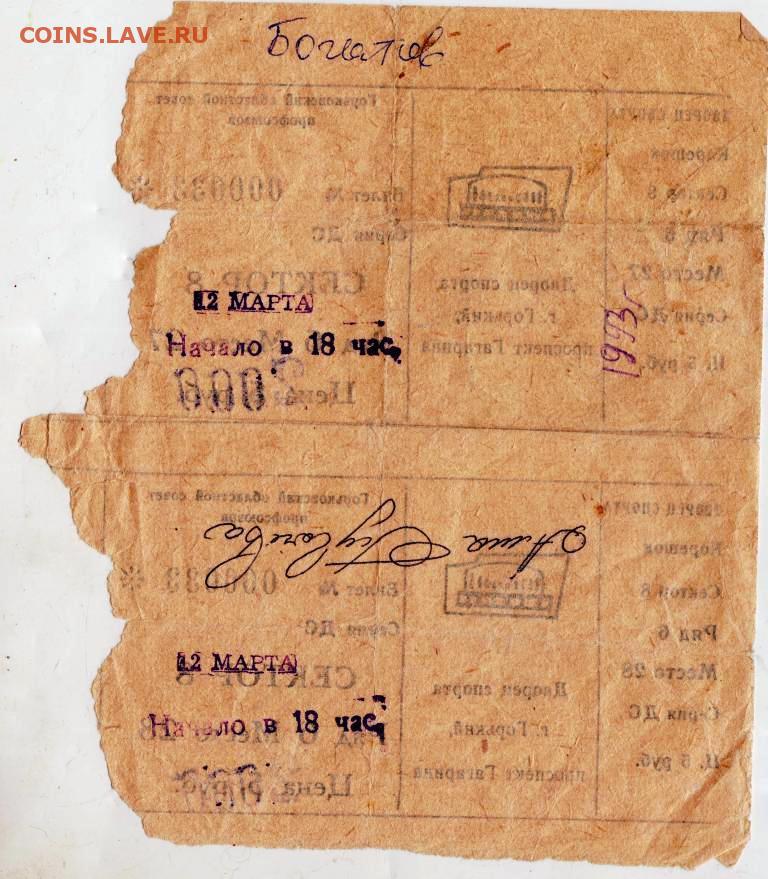 COINS.LAVE.RU
ДВОРЕЦ СПОРТА
Корешок
Сектор 8
Ряд 6
Место 27
Серия ДС
Ц. 5 руб.
Дворец спорта
г. Горький,
проспект Гагарина
Горьковский областной совет
профсоюзов
Билет № 000033 *
Серия ДС
СЕКТОР 8
Ряд 6 Место 27
Цена 5 руб.
2000
12 МАРТА
Начало в 18 час.
1993г
ДВОРЕЦ СПОРТА
Корешок
Сектор 8
Ряд 6
Место 28
Серия ДС
Ц. 5 руб.
Дворец спорта
г. Горький,
проспект Гагарина
Горьковский областной совет
профсоюзов
Билет № 000033 *
Серия ДС
СЕКТОР 8
Ряд 6 Место 28
Цена 5 руб.
12 МАРТА
Начало в 18 час.